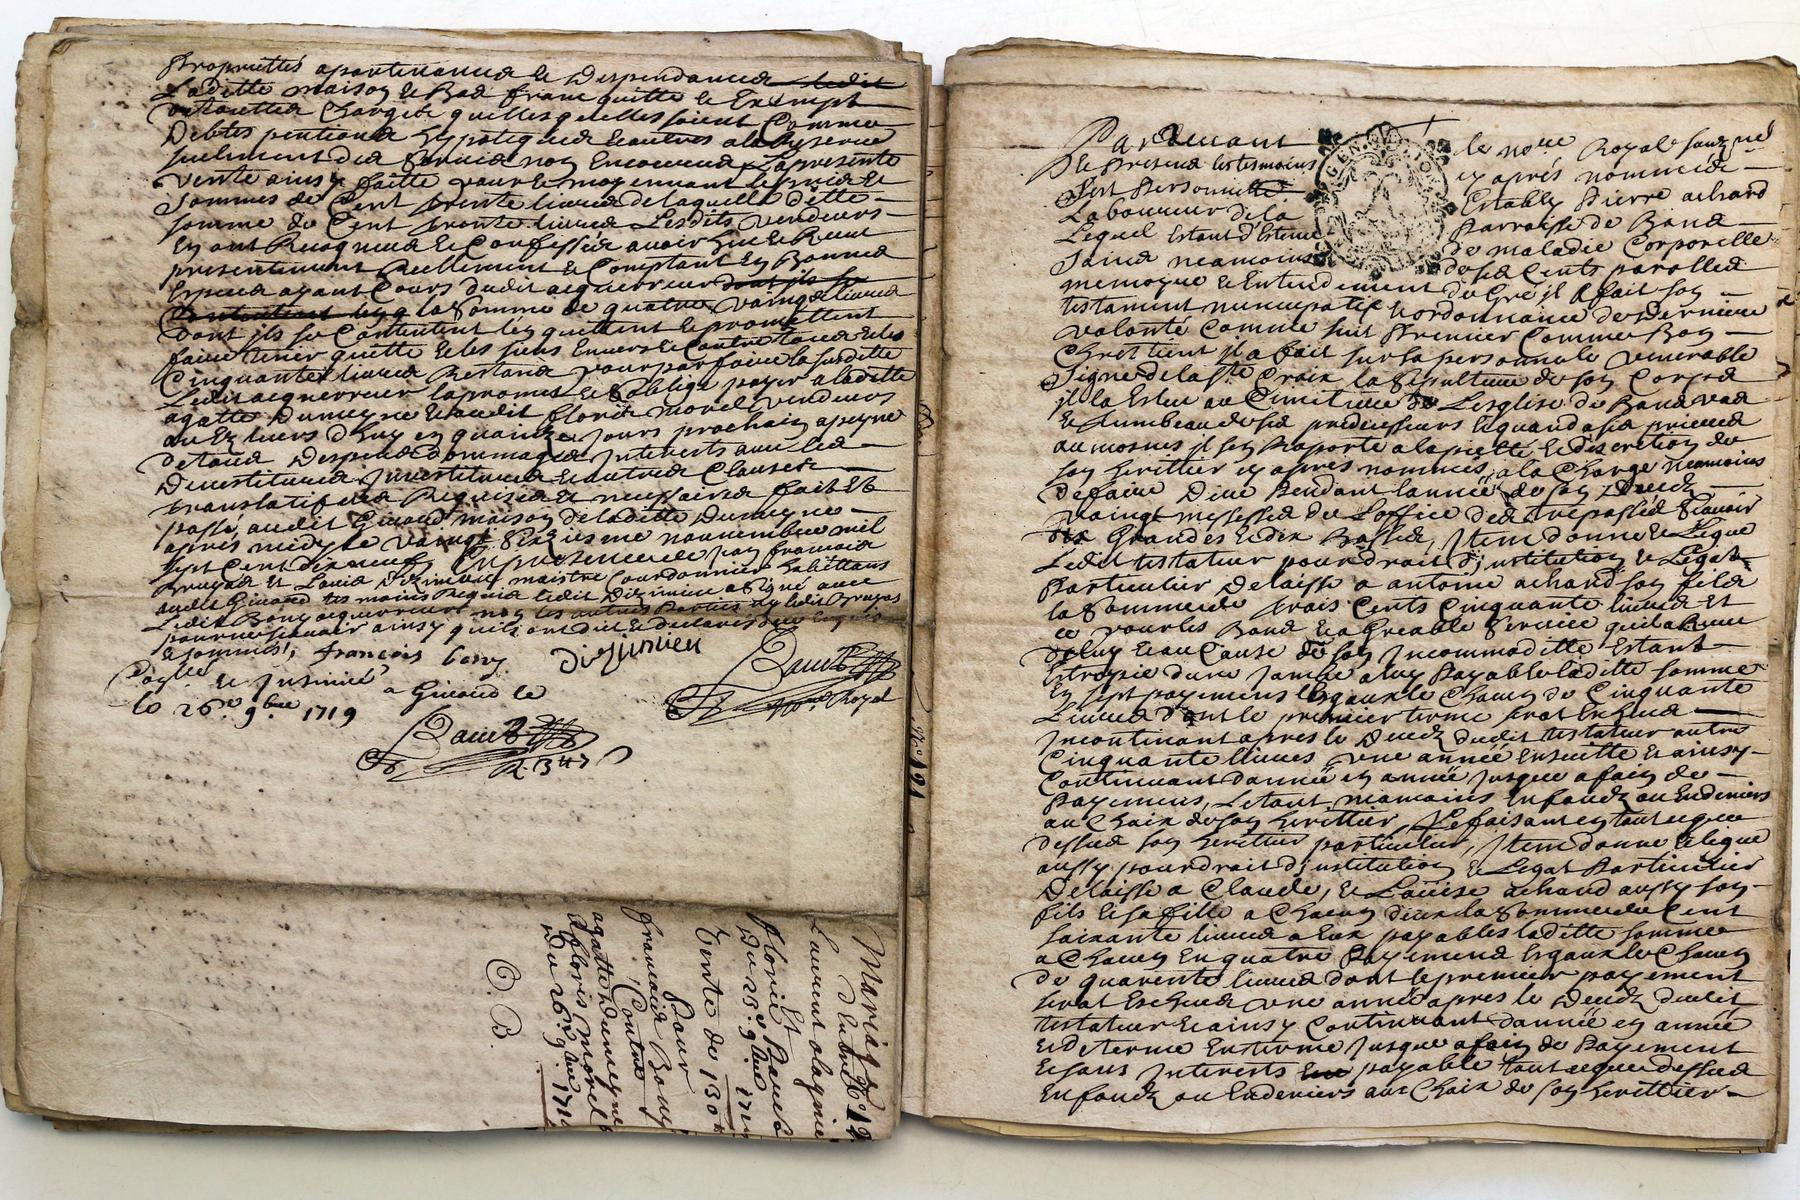 Proprietés apartenances & Despendances ledit
Laditte maison & Bas franc quitte & Exempt
de touttes Charges quelles quelles soient Comme
Debtes pentions hypoteques & autres a la Reserve
sulement des servis non Encourus, La presente
vente ainsy faitte pour & moyennant le prix Et
sommes de Cent trente livres de laquelle ditte
somme de Cent trente livres Lesdits vendeurs
En ont Recogneus & Confessés avoir heu & Receu
presentement Reellement & Comptant En Bonnes
Especes ayant Cours dudit acquerreur dont ils se
Contentent la somme de quatre vaingt livres
dont ils se Contentent l'en quittent & promettent
faire tenir quitte & les siens Envers & Contre tous & les
Cinquante livres Restans pour parfaire la susditte
Ledit acquerreur la promet & s'oblige payer a laditte
agatte Dumeyne & audit Floris morel vendeurs
au Ez leurs d'huy en quainze jours prochain apeyne
de tous Despens dommages Interests avec les
Devestitures Investitures & autres Clauses
translatifves Requises et necessaires fait Et
passé audit Givord maison de laditte Dumeyne
apres midy le vaingt sixiesme novembre mil
sept Cent dix neuf, En presence de francois
Bruyas et Louis Dizimieu maistre Courdonnier habittans
audit Givord tesmoins Requis ledit Dizimieu a signé avec
Ledit Bony acquerreur non les autres Parties ny ledit Bruyas
pour ne scavoir ainsy qu'ils ont dit & declaré de ce Enquis
& sommés, francois bony Dizimieu
Controllé & Insinué a Givord le
le 26e. 9bre 1719
Nre. Royal
Mariage
d'entre
Laurent olagnier
Et
florie
Du 25e 9bre 171
Vente de 130 lt
Pour
francois Bony
Contre
agatte Dumeyne
& floris Morel
Du 26e. 9bre 171
C. B.
Pardevant le nore Royal soubzné
& Presens les tesmoins cy après nommés
fust Personnelle Estably Pierre achard
Laboureur de la Parroisse de Bans
Lequel Estant destenu de maladie Corporelle
Sains neamoins de ses Cents parolles
memoyre & Entendement de Gré il a fait son
testament nuncupatif & ordonnance de derniere
volonté Comme suit Premier Comme Bon
Chrestient il a fait sur sa personne le venerable
Signe de la ste Croix la sepulture de son Corps
il la Esleu au Cimitiere de L'esglise de Bans vas
& tumbeau de ses predecesseurs & quand a ses prieres
aumosnes il s'en Raporte a la pietté & discretion de
son herittier cy apres nommé, a la Charge neamoins
de faire Dire Pendant l'année de son Decedz
vaingt messes de L'office des trepassés scavoir
dix Grandes & dix Basses, Item donne & Legue
Ledit testateur pour droit d'institution & Legat
Particulier Delaisse a antoine achard son fils
la somme de trois Cents Cinquante livres Et
ce pour les Bons & agreable service qu'il a Receu
de luy & au Cause de son Incommoditté Estant
Estropié d'une jambe a luy Payable laditte somme
En sept payemens Esgaux & Chacun de Cinquante
Livres dont le premier terme serat Escheus
Incontinant apres le Decedz dudit testateur autre
Cinquante livres une année Ensuitte & ainsy
Continuant d'année en année jusque a fain de
Payemens, Le tout neamoins En fondz ou En deniers
au Choix de son herittier, Le faisant en tout ce que
dessus son herittier particulier, Item donne & legue
aussy pour droit d'institution & Legat Particulier
Delaisse a Claude, & Loüise achard aussy son
fils & sa fille a Chacun d'eux la somme de Cent
soixante livres a Eux payables laditte somme
a Chacun En quatre Payemens Esgaux & Chacun
de quarente livres dont le premier payement
serat Escheus une année apres le Decedz dudit
testateur & ainsy Continuant d'année en année
& de terme En terme jusque a fain de Payement
& sans Interests payable tout ce que dessus
En fondz ou En deniers aux Choix de son herittier